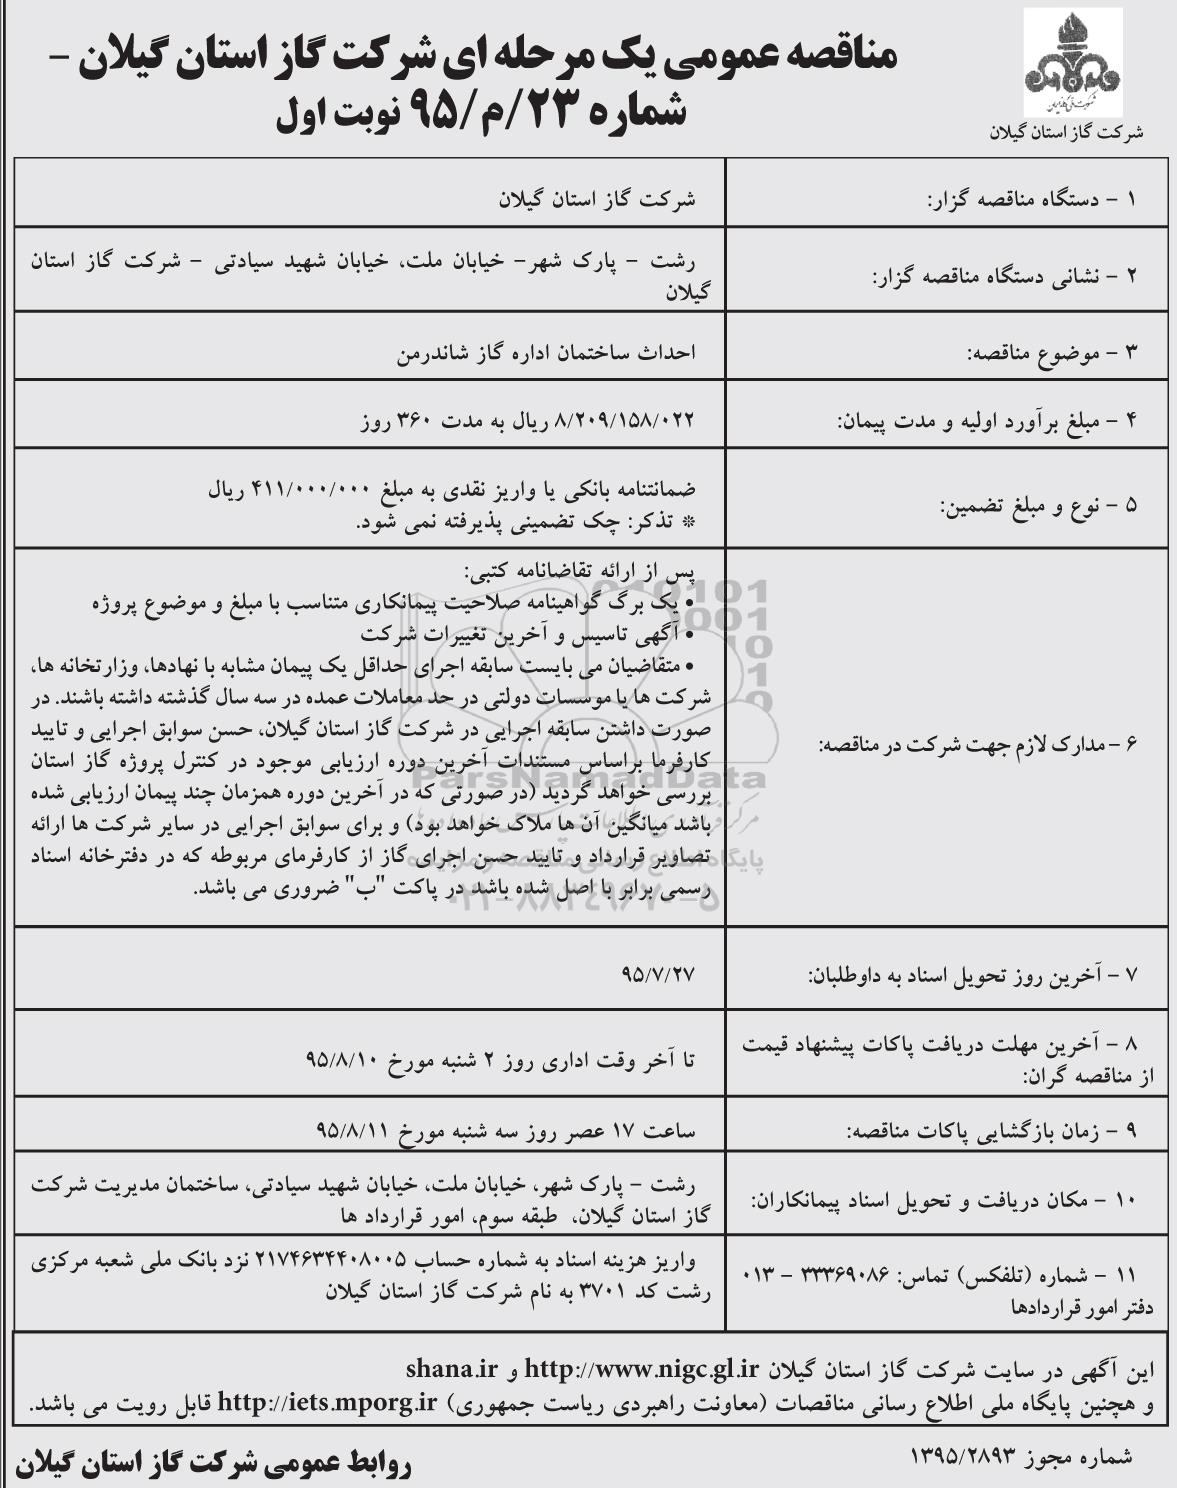 مناقصه عمومی یک مرحله ای شرکت گاز استان گیلان –
شماره ۲۳/م/۹۵ نوبت اول
شرکت گاز استان گیلان
۱ – دستگاه مناقصه گزار:
شرکت گاز استان گیلان
۲ – نشانی دستگاه مناقصه گزار:
رشت – پارک شهر– خیابان ملت، خیابان شهید سیادتی – شرکت گاز استان
گیلان
۳ – موضوع مناقصه:
احداث ساختمان اداره گاز شاندرمن
۴ – مبلغ برآورد اولیه و مدت پیمان:
۸/۲۰۹/۱۵۸/۰۲۲ ریال به مدت ۳۶۰ روز
۵ – نوع و مبلغ تضمین:
ضمانتنامه بانکی یا واریز نقدی به مبلغ ۴۱۱/۰۰۰/۰۰۰ ریال
* تذکر: چک تضمینی پذیرفته نمی شود.
۶ – مدارک لازم جهت شرکت در مناقصه:
پس از ارائه تقاضانامه کتبی:
• یک برگ گواهینامه صلاحیت پیمانکاری متناسب با مبلغ و موضوع پروژه
• آگهی تاسیس و آخرین تغییرات شرکت
• متقاضیان می بایست سابقه اجرای حداقل یک پیمان مشابه با نهادها، وزارتخانه ها،
شرکت ها یا موسسات دولتی در حد معاملات عمده در سه سال گذشته داشته باشند. در
صورت داشتن سابقه اجرایی در شرکت گاز استان گیلان، حسن سوابق اجرایی و تایید
کارفرما براساس مستندات آخرین دوره ارزیابی موجود در کنترل پروژه گاز استان
بررسی خواهد گردید (در صورتی که در آخرین دوره همزمان چند پیمان ارزیابی شده
باشد میانگین آن ها ملاک خواهد بود) و برای سوابق اجرایی در سایر شرکت ها ارائه
تصاویر قرارداد و تایید حسن اجرای گاز از کارفرمای مربوطه که در دفترخانه اسناد
رسمی برابر با اصل شده باشد در پاکت "ب" ضروری می باشد.
ParsNamadData
پایگاه اطلاع رسانی مناقصه و مزایده
۰۲۱-۸۸۳۴۹۶۷۰-۵
۷ – آخرین روز تحویل اسناد به داوطلبان:
۹۵/۷/۲۷
۸ – آخرین مهلت دریافت پاکات پیشنهاد قیمت
از مناقصه گران:
تا آخر وقت اداری روز ۲ شنبه مورخ ۹۵/۸/۱۰
۹ – زمان بازگشایی پاکات مناقصه:
ساعت ۱۷ عصر روز سه شنبه مورخ ۹۵/۸/۱۱
۱۰ – مکان دریافت و تحویل اسناد پیمانکاران:
رشت – پارک شهر، خیابان ملت، خیابان شهید سیادتی، ساختمان مدیریت شرکت
گاز استان گیلان، طبقه سوم، امور قرارداد ها
۱۱ – شماره (تلفکس) تماس: ۳۳۳۶۹۰۸۶ – ۰۱۳
دفتر امور قراردادها
واریز هزینه اسناد به شماره حساب ۲۱۷۴۶۳۴۴۰۸۰۰۵ نزد بانک ملی شعبه مرکزی
رشت کد ۳۷۰۱ به نام شرکت گاز استان گیلان
این آگهی در سایت شرکت گاز استان گیلان http://www.nigc.gl.ir و shana.ir
و هچنین پایگاه ملی اطلاع رسانی مناقصات (معاونت راهبردی ریاست جمهوری) http://iets.mporg.ir قابل رویت می باشد.
شماره مجوز ۱۳۹۵/۲۸۹۳
روابط عمومی شرکت گاز استان گیلان